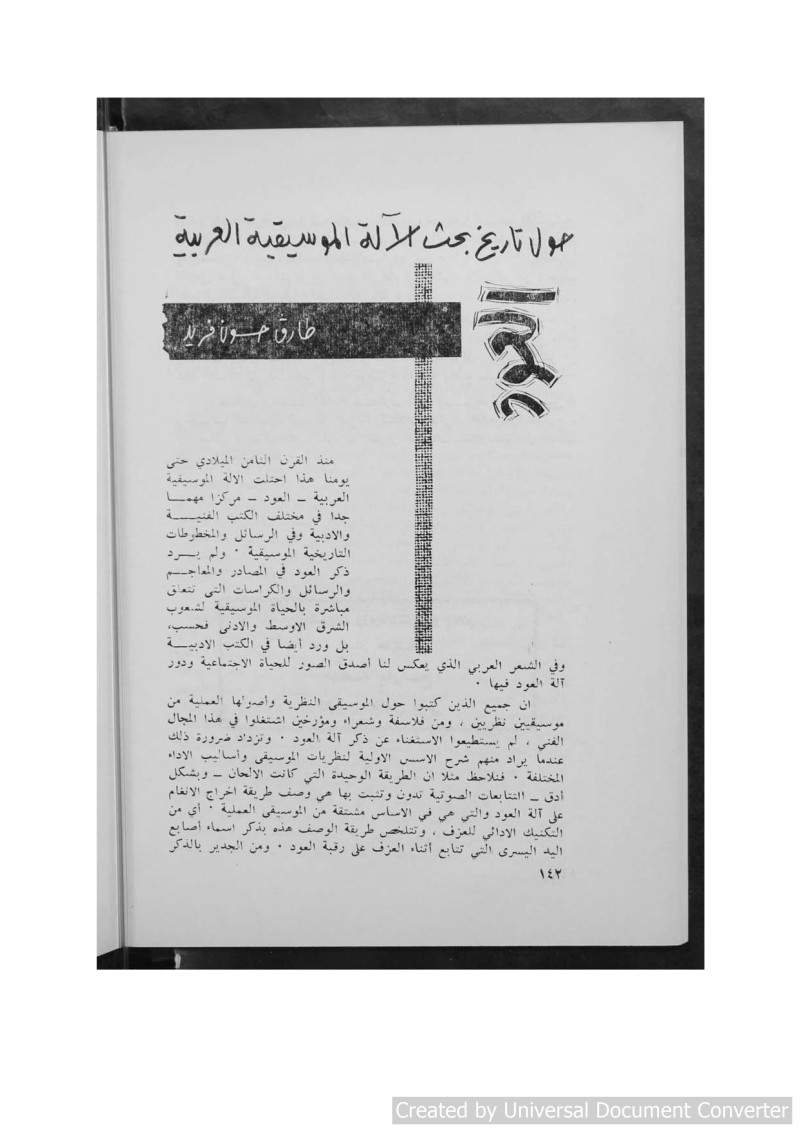 حول تاريخ بحث الآلة الموسيقية العربية
العود
طارق حسون فريد
منذ القرن الثامن الميلادي حتى
يومنا هذا احتلت الالة الموسيقية
العربية ــ العود ــ مركزا مهمـــا
جدا في مختلف الكتب الفنيـــــة
والادبية وفي الرسائل والمخطوطات
التاريخية الموسيقية ٠ ولم يـــرد
ذكر العود في المصادر والمعاجــم
والرسائل والكراسات التي تتعلق
مباشرة بالحياة الموسيقية لشعوب
الشرق الاوسط والادنى فحسب،
بل ورد أيضا في الكتب الادبيـــة
وفي الشعر العربي الذي يعكس لنا أصدق الصور للحياة الاجتماعية ودور
آلة العود فيها ٠
ان جميع الذين كتبوا حول الموسيقى النظرية وأصولها العملية من
موسيقيين نظريين ، ومن فلاسفة وشعراء ومؤرخين اشتغلوا في هذا المجال
الفني ، لم يستطيعوا الاستغناء عن ذكر آلة العود ٠ وتزداد ضرورة ذلك
عندما يراد منهم شرح الاسس الاولية لنظريات الموسيقى وأساليب الاداء
المختلفة ٠ فنلاحظ مثلا ان الطريقة الوحيدة التي كانت الالحان ــ وبشكل
أدق ــ التتابعات الصوتية تدون وتثبت بها هي وصف طريقة اخراج الانغام
على آلة العود والتي هي في الاساس مشتقة من الموسيقى العملية ٠ أي من
التكنيك الادائي للعزف ، وتتلخص طريقة الوصف هذه بذكر اسماء أصابع
اليد اليسرى التي تتابع أثناء العزف على رقبة العود ٠ ومن الجدير بالذكر
١٤٢
Created by Universal Document Converter